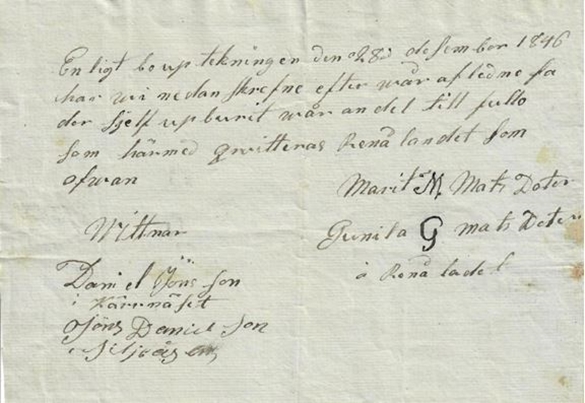 Enligt bo up tekningen den 28de desember 1846
har wi nedan skrefne efter wår afledne fa
der sjelf upburit wår andel till fullo
som härmed qwitteras Renå landet som
ofwan
Marit M Mats Doter
Wittnar
Gunila G mats Doter
å Renå ladet
Daniel Jöns son
i Kärrnäset
Jöns Daniel son